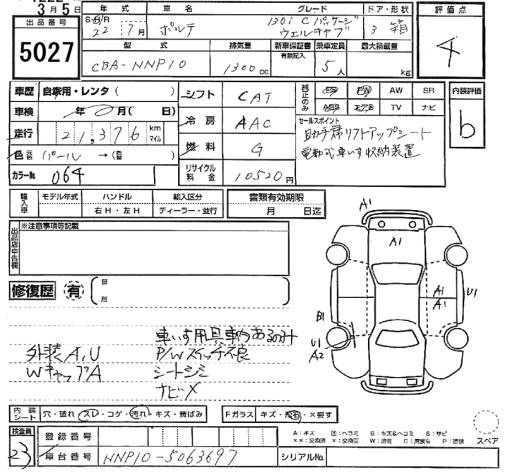 3月5日
出品番号
5027
年式 車名 グレード ドア・形状
S・H/R 22年7月 ポルテ 130i Cパッケージ ウェルキャブ 3 箱
型式 排気量 新車保証書 乗車定員 最大積載量
有 記入
CBA-NNP10 1300cc 5人 kg
評価点
4
内装評価
b
車歴 自家用・レンタ( )
車検 年 月( 日)
走行 21,376 km マイル
色 パール →(自
カラー№ 064
シフト CAT
冷房 AAC
燃料 G
リサイクル料金 10520円
AW SR
TV ナビ
セールスポイント
助手席リフトアップシート
電動式車いす収納装置
輸入車 モデル年式 ハンドル 輸入区分
年 右H・左H ディーラー・並行
書類有効期限
月 日迄
出品店申告欄
※注意事項等記載
修復歴 有
箇所
外装A,U
WキャップA
車いす用具車内あるのみ
P/Wスイッチ不良
シートシミ
ナビ×
A1
A1
A1
A1
U1
B1
U1
A2
内装シート 穴・破れ・スレ・コゲ・汚れ・キズ・黄ばみ
Fガラス キズ・飛石・×要す
検査員
23
登録番号
車台番号 NNP10-5063697
シリアル№
A:キズ U:ヘコミ B:キズ&ヘコミ S:サビ
××:交換済 ×:交換要 W:波有 C:腐蝕有 P:塗装
スペア